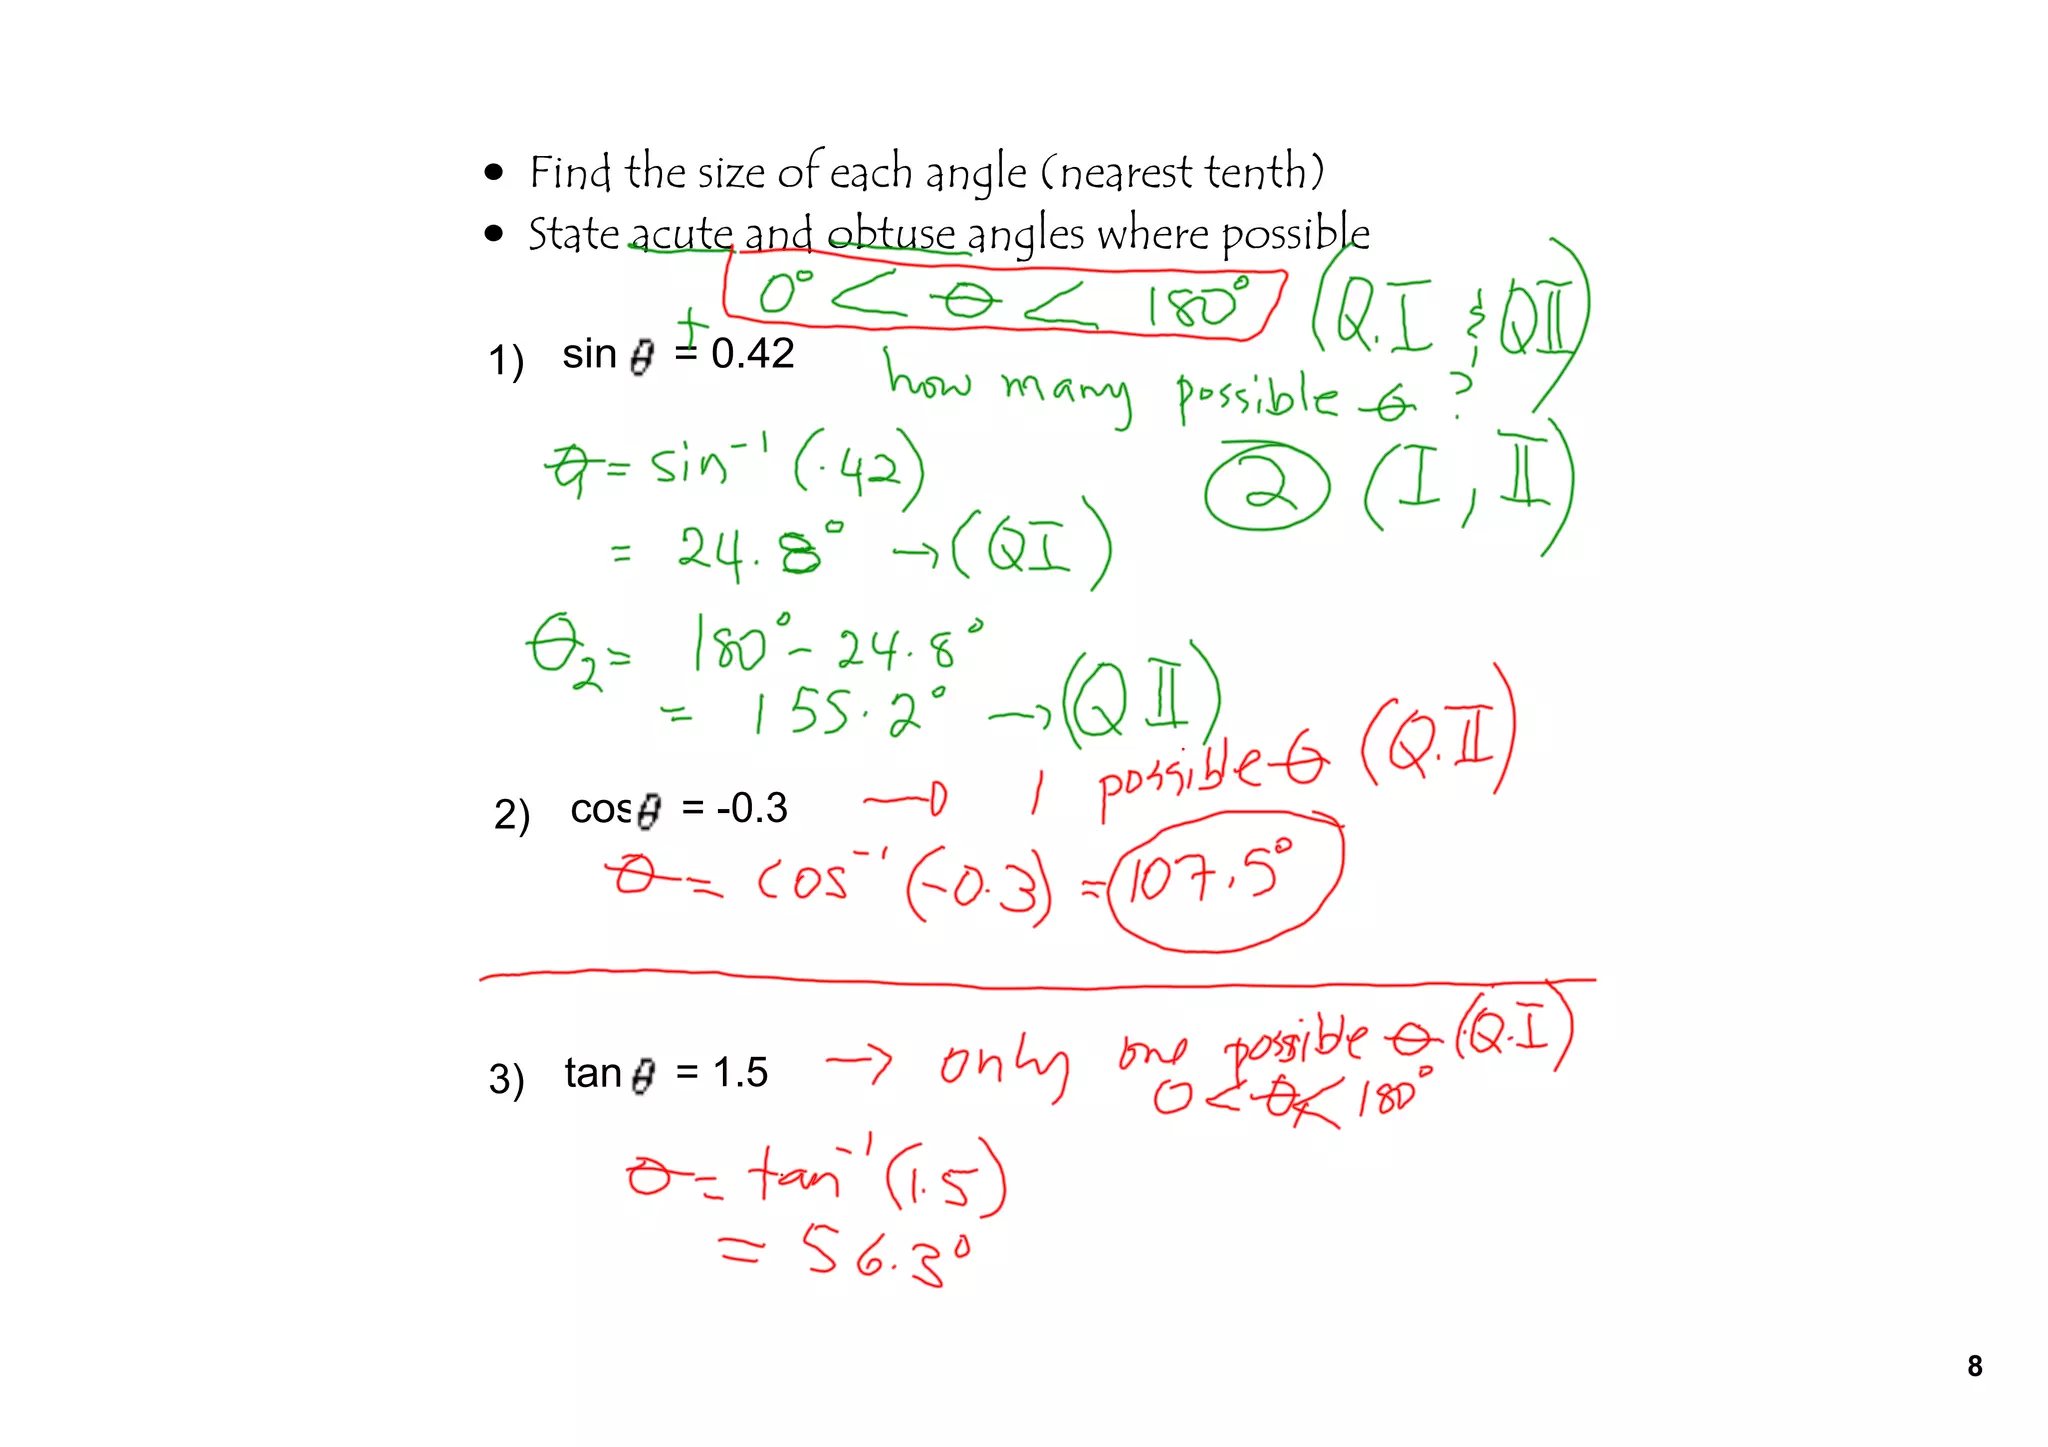 • Find the size of each angle (nearest tenth)
• State acute and obtuse angles where possible
0° < θ < 180° (Q.I & QII)
+
1) sin θ = 0.42
how many possible θ ?
θ₁ = sin⁻¹ (.42)
② (I, II)
= 24.8° → (QI)
θ₂ = 180° - 24.8°
= 155.2° → (Q II)
2) cos θ = -0.3 → 1 possible θ (Q.II)
θ = cos⁻¹ (-0.3) = 107.5°
3) tan θ = 1.5 → only one possible θ (Q.I)
0 < θ < 180°
θ = tan⁻¹ (1.5)
= 56.3°
8